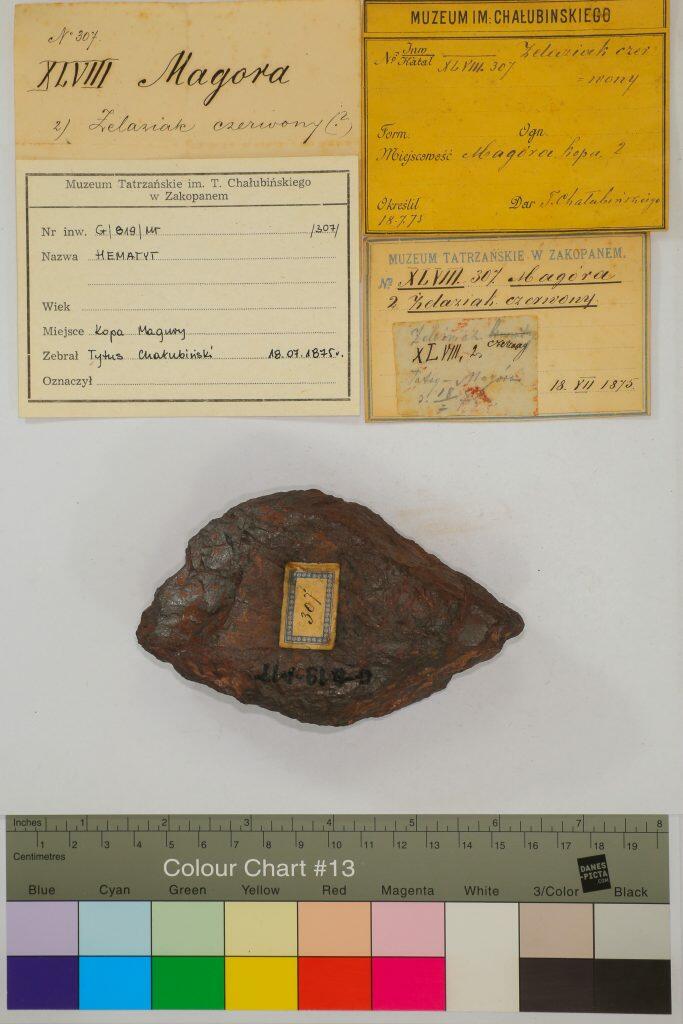 No 307.
XLVIII Magora
2) Żelaziak czerwony (?)
MUZEUM IM: CHAŁUBINSKIEGO
No Inw
Katal XLVIII. 307 Żelaziak czer
= wony
Form. Ogn
Miejscowość Magóra kopa 2
Określił Dar T. Chałubińskiego
18.7.75
Muzeum Tatrzańskie im. T. Chałubińskiego
w Zakopanem
Nr inw. G/819/MT /307/
Nazwa HEMATYT
Wiek
Miejsce Kopa Magury
Zebrał Tytus Chałubiński 18.07.1875r.
Oznaczył
MUZEUM TATRZAŃSKIE W ZAKOPANEM.
No XLVIII. 307. Magóra
2 Żelaziak czerwony.
Żelaziak
XLVIII, 2. czerwony
Tatry - Magóra
18. VII 1875.
307
G-819-MT
Inches 1 2 3 4 5 6 7 8
1 2 3 4 5 6 7 8 9 10 11 12 13 14 15 16 17 18 19
Centimetres
Colour Chart #13
DANES
-PICTA
.COM
Blue Cyan Green Yellow Red Magenta White 3/Color Black